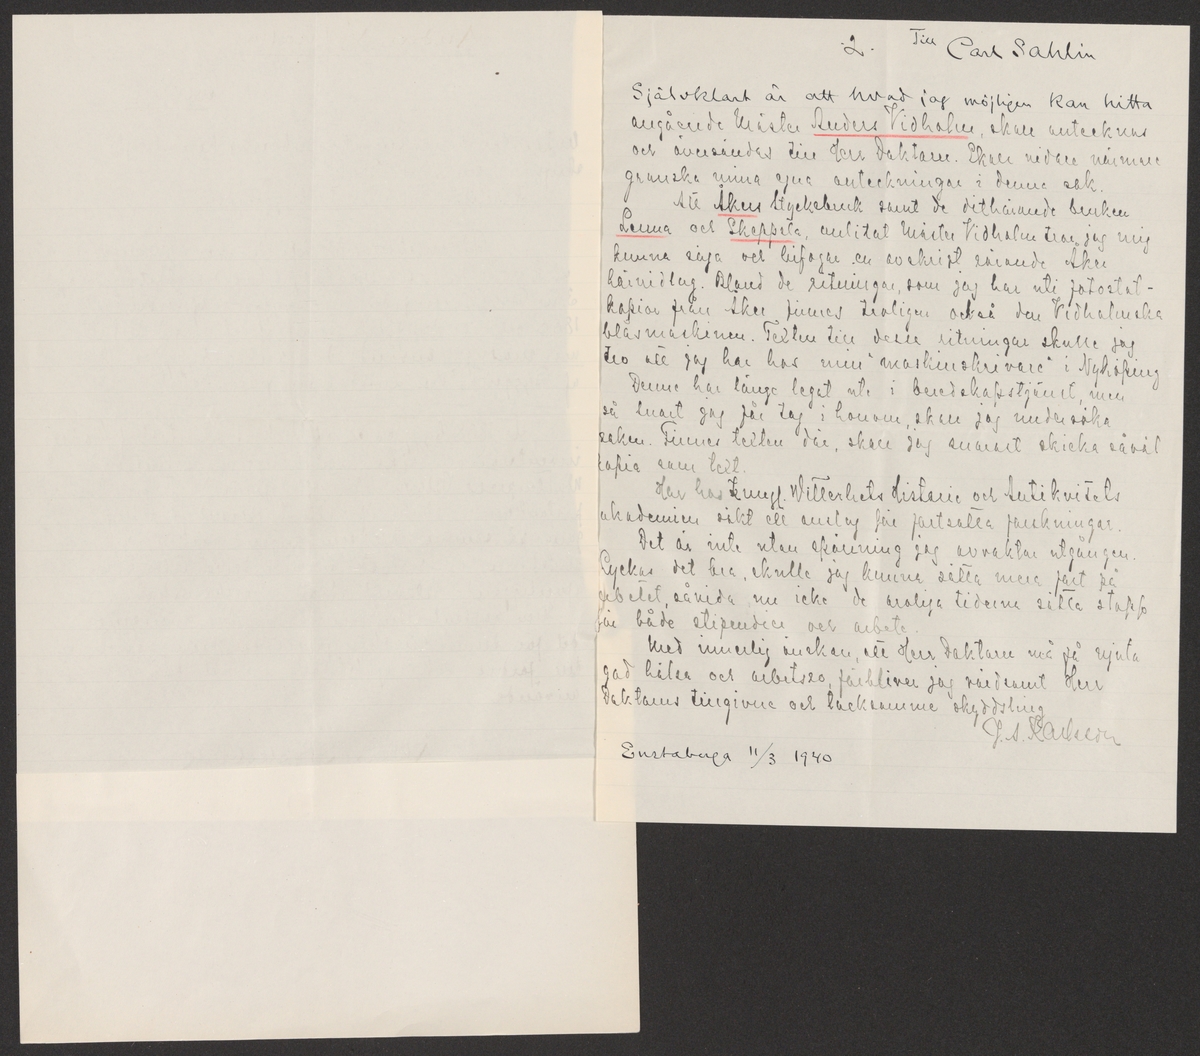 2. Till Carl Sahlin
Självklart är att hvad jag möjligen kan hitta
angående Mäster Anders Vidholm, skall antecknas
och översändas till Herr Doktorn. Skall vidare närmare
granska mina egna anteckningar i denna sak.
Att Åkers Styckebruk samt de dithörande bruken
Lenna och Skeppsta, anlitat Mäster Vidholm tror jag mig
kunna säga och bifogar en avskrift rörande Åker
härvidlag. Bland de ritningar, som jag har uti fotostat-
kopior från Åker finnes troligen också den Vidholmska
blåsmaskinen. Texten till dessa ritningar skulle jag
tro att jag har hos min "maskinskrivare" i Nyköping
Denne har länge legat ute i beredskapstjänst, men
så snart jag får tag i honom, skall jag undersöka
saken. Finnes texten där, skall jag snarast skicka såväl
kopia som text.
Har hos Kungl. Witterhets Historie och Antikvitets
akademien sökt ett anslag för fortsatta forskningar.
Det är inte utan spänning jag avvaktar utgången.
Lyckas det bra, skulle jag kunna sätta mera fart på
arbetet, såvida nu icke de oroliga tiderna sätta stopp
för både stipendier och arbete.
Med innerlig önskan, att Herr Doktorn må få njuta
god hälsa och arbetsro, förbliver jag vördsamt Herr
Doktorns tillgivne och tacksamme skyddsling
J. A. Karlsson
Enstaberga 11/3 1940